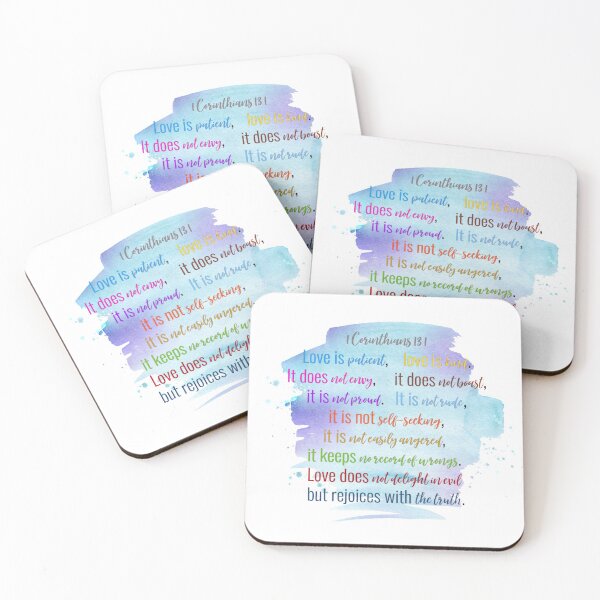 1 Corinthians 13:1
Love is patient, love is kind.
It does not envy, it does not boast,
it is not proud. It is not rude,
1 Corinthians 13:1
Love is patient, love is kind.
It does not envy, it does not boast,
it is not proud. It is not rude,
it is not self-seeking,
it is not easily angered,
it keeps no record of wrongs.
1 Corinthians 13:1
Love is patient, love is kind.
It does not envy, it does not boast,
it is not proud. It is not rude,
it is not self-seeking,
it is not easily angered,
it keeps no record of
Love does not delight
but rejoices with
1 Corinthians 13:1
Love is patient, love is kind.
It does not envy, it does not boast,
it is not proud. It is not rude,
it is not self-seeking,
it is not easily angered,
it keeps no record of wrongs.
Love does not delight in evil
but rejoices with the truth.